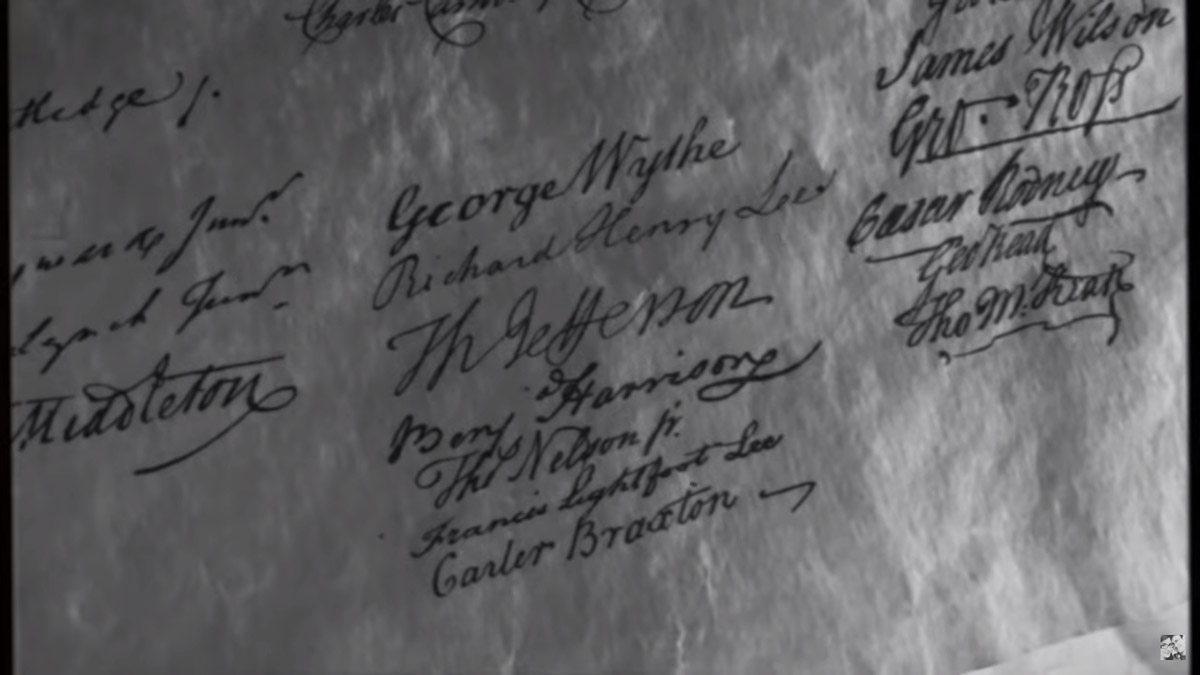 Charles Carroll
tledge Jr.
yward Junr.
Lynch Junr.
Middleton
George Wythe
Richard Henry Lee
Th Jefferson
Benj Harrison
Thos Nelson jr.
Francis Lightfoot Lee
Carter Braxton
James Wilson
Geo. Ross
Caesar Rodney
Geo Read
Tho M:Kean